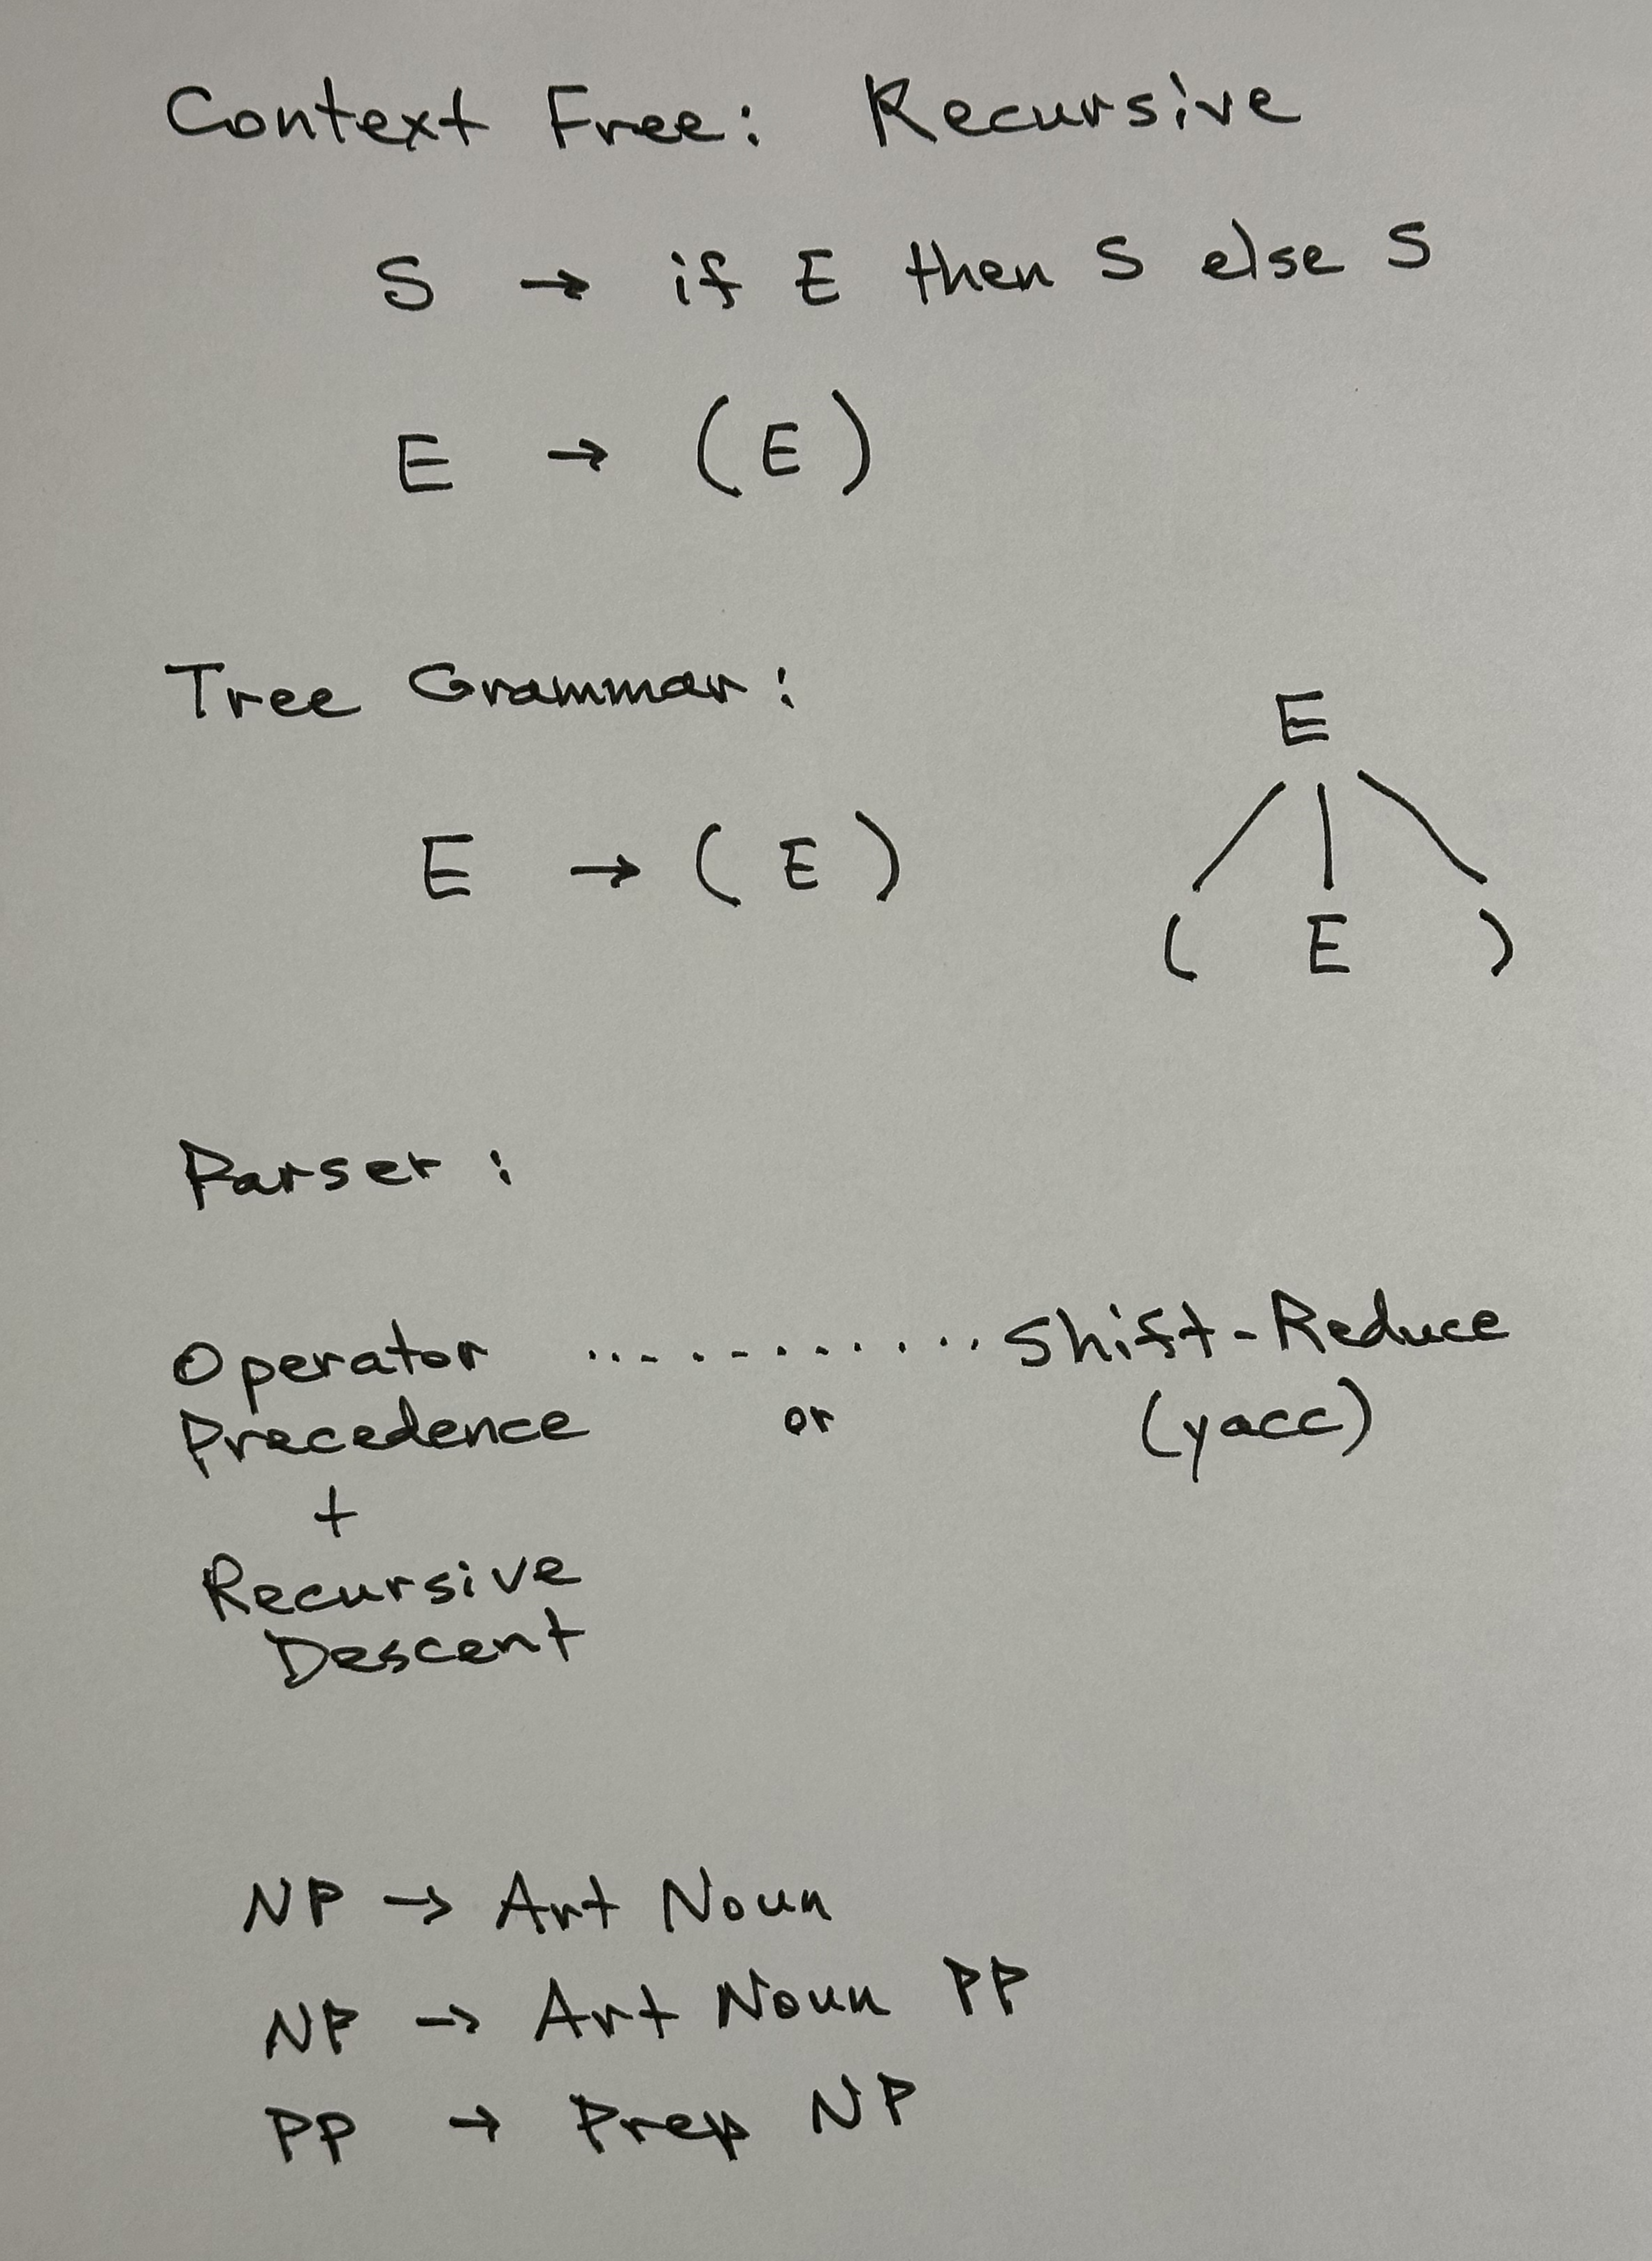 Context Free: Recursive
S → if E then S else S
E → (E)
Tree Grammar:
E
E → ( E )
( E )
Parser:
Operator ............ Shift-Reduce
Precedence or (yacc)
+
Recursive
Descent
NP → Art Noun
NP → Art Noun PP
PP → Prep NP